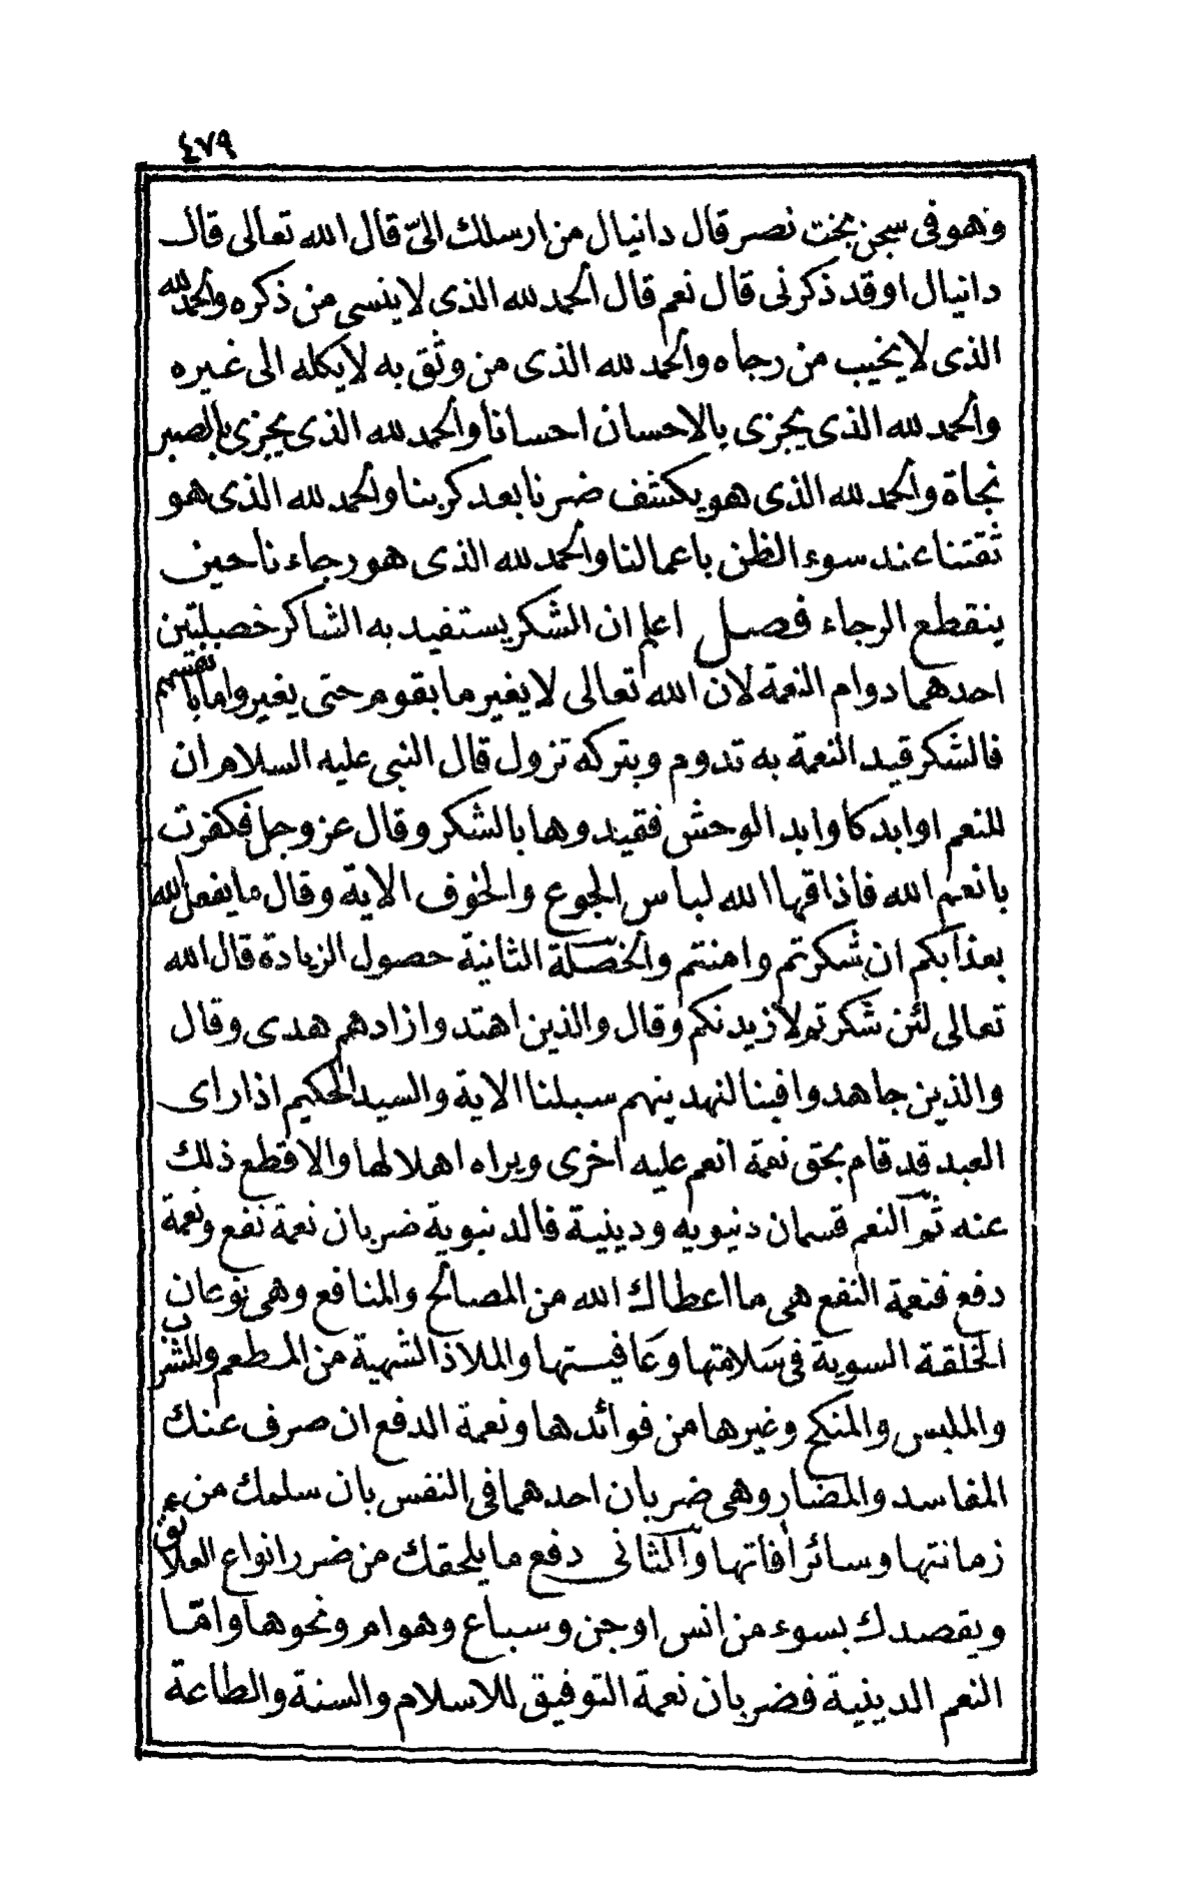 ٤٧٩
وهو في سجن بخت نصر قال دانيال من ارسلك الىّ قال الله تعالى قال
دانيال اوقد ذكرنى قال نعم قال الحمد لله الذى لا ينسى من ذكره والحمد لله
الذى لا يخيب من رجاه والحمد لله الذى من وثق به لا يكله الى غيره
والحمد لله الذى يجزى بالاحسان احسانا والحمد لله الذى يجزى بالصبر
نجاة والحمد لله الذى هو يكشف ضرنا بعد كربنا والحمد لله الذى هو
ثقتنا عند سوء الظن باعمالنا والحمد لله الذى هو رجاء ناحين
ينقطع الرجاء فصل اعلم ان الشكر يستفيد به الشاكر خصلتين
احدهما دوام النعمة لان الله تعالى لا يغير ما بقوم حتى يغيروا ما بانفسهم
فالشكر قيد النعمة به تدوم وبتركه تزول قال النبى عليه السلام ان
للنعم اوابد كاوابد الوحش فقيدوها بالشكر وقال عز وجل فكفرت
بانعم الله فاذاقها الله لباس الجوع والخوف الاية وقال ما يفعل الله
بعذابكم ان شكرتم وامنتم والخصلة الثانية حصول الزيادة قال الله
تعالى لئن شكرتم لازيدنكم وقال والذين اهتدوا زادهم هدى وقال
والذين جاهدوا فينا لنهدينهم سبلنا الاية والسيد الحكيم اذا راى
العبد قد قام بحق نعمة انعم عليه اخرى ويراه اهلا لها والا قطع ذلك
عنه ثم النعم قسمان دنيويه ودينية فالدنيوية ضربان نعمة نفع ونعمة
دفع فنعمة النفع هى ما اعطاك الله من المصالح والمنافع وهى نوعان
الخلقة السوية فى سلامتها وعافيتها والملاذ الشهية من المطعم والمشرب
والملبس والمنكح وغيرها من فوائدها ونعمة الدفع ان صرف عنك
المفاسد والمضار وهى ضربان احدهما فى النفس بان سلمك من
زمانتها وسائر أفاتها والثانى دفع ما يلحقك من ضرر انواع العلائق
ويقصدك بسوء من انس او جن وسباع وهوام ونحوها وامّا
النعم الدينية فضربان نعمة التوفيق للاسلام والسنة والطاعة